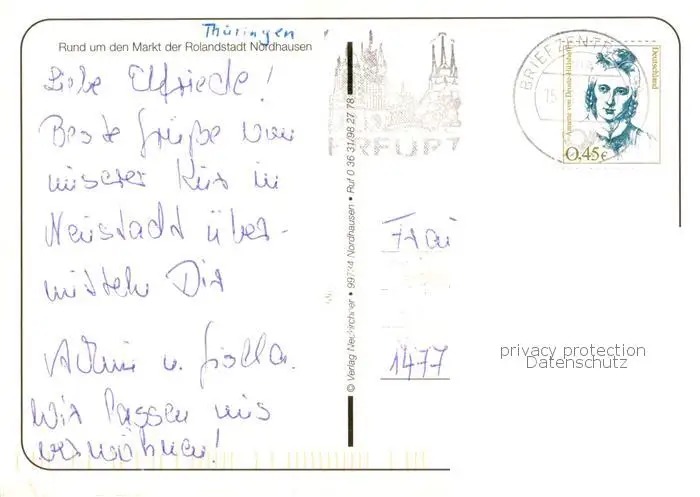 Thüringen
Rund um den Markt der Rolandstadt Nordhausen
Liebe Elfriede!
Beste Grüße von
unserer Kur in
Neustadt über-
mitteln Dir
u. Gisela.
Wir lassen uns
verwöhnen!
© Verlag Neukirchner • 99734 Nordhausen • Ruf 0 36 31/98 27 78
ERFURT
BRIEFZENTR
Deutschland
Annette von Droste-Hülshoff
0,45€
Frau
1477
privacy protection
Datenschutz